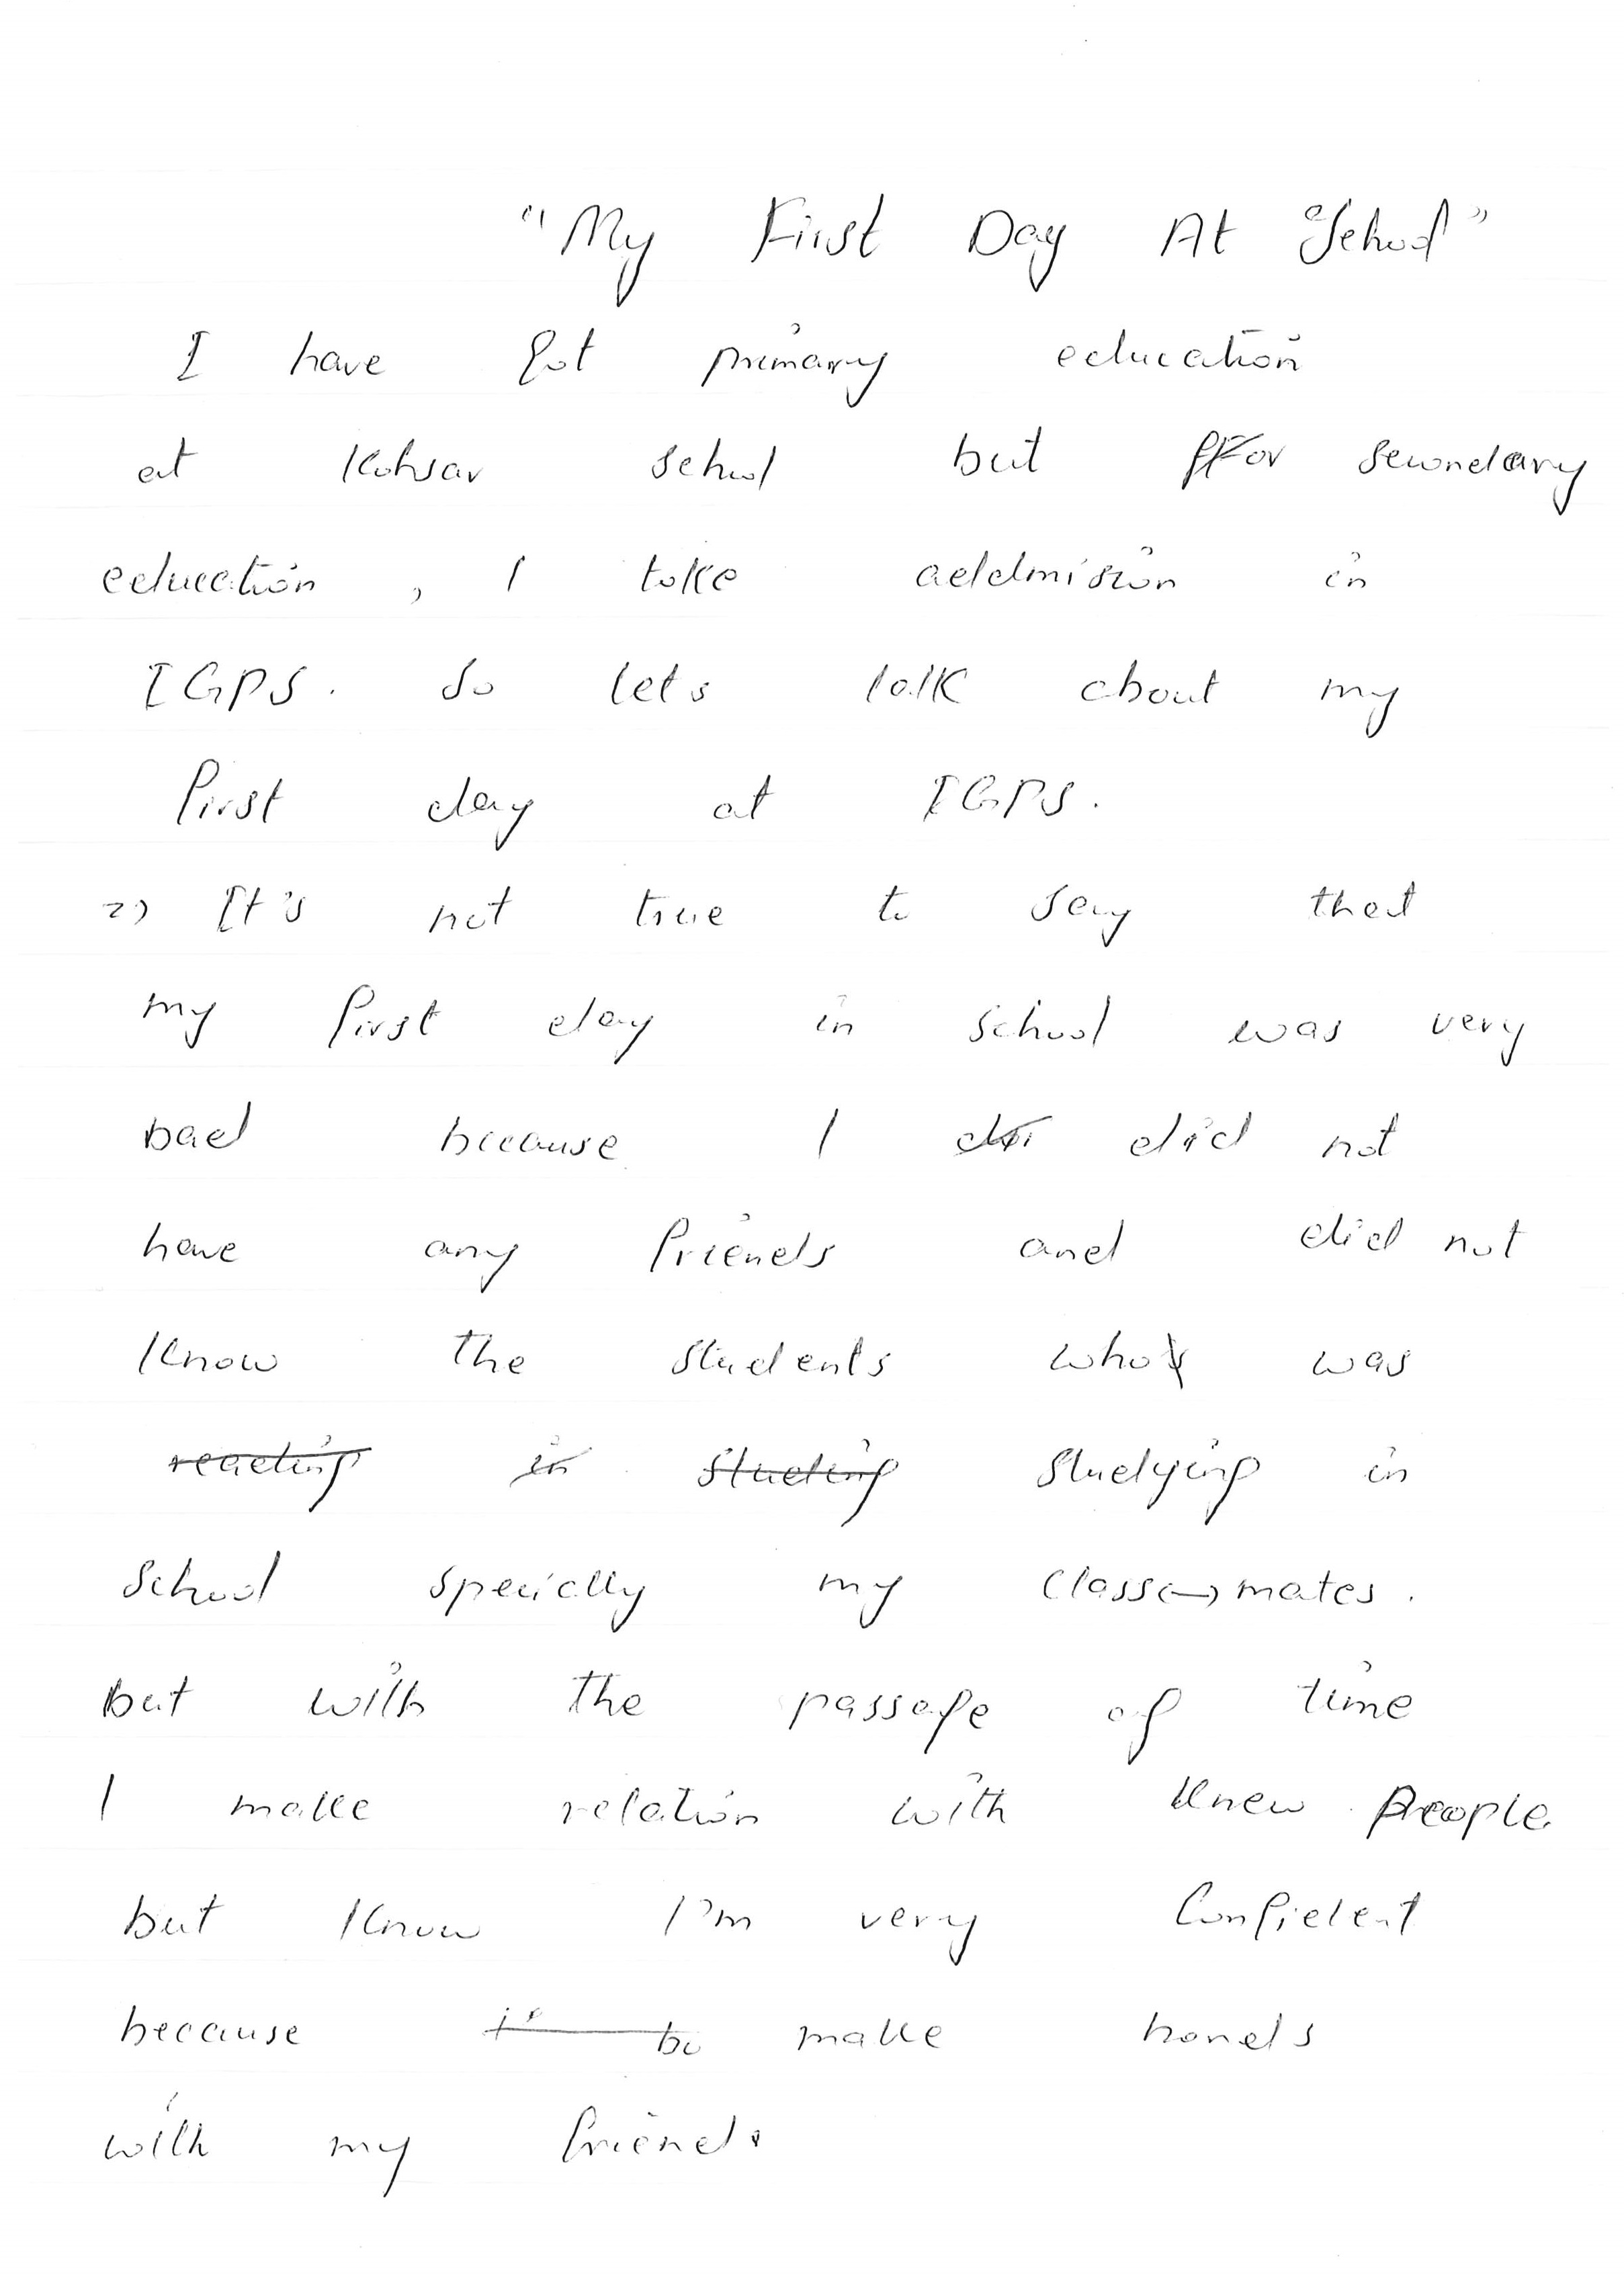 "My First Day At School"
I have got primary education
at Kohsar school but for secondary
education , I take addmision in
IGPS. So lets talk about my
first day at IGPS.
=> It's not true to say that
my first day in school was very
bad because I did not
have any friends and did not
know the students who was
reading in studing studying in
School specially my class mates.
but with the passage of time
I make relation with knew people
but know I'm very confident
because make bonds
with my friends